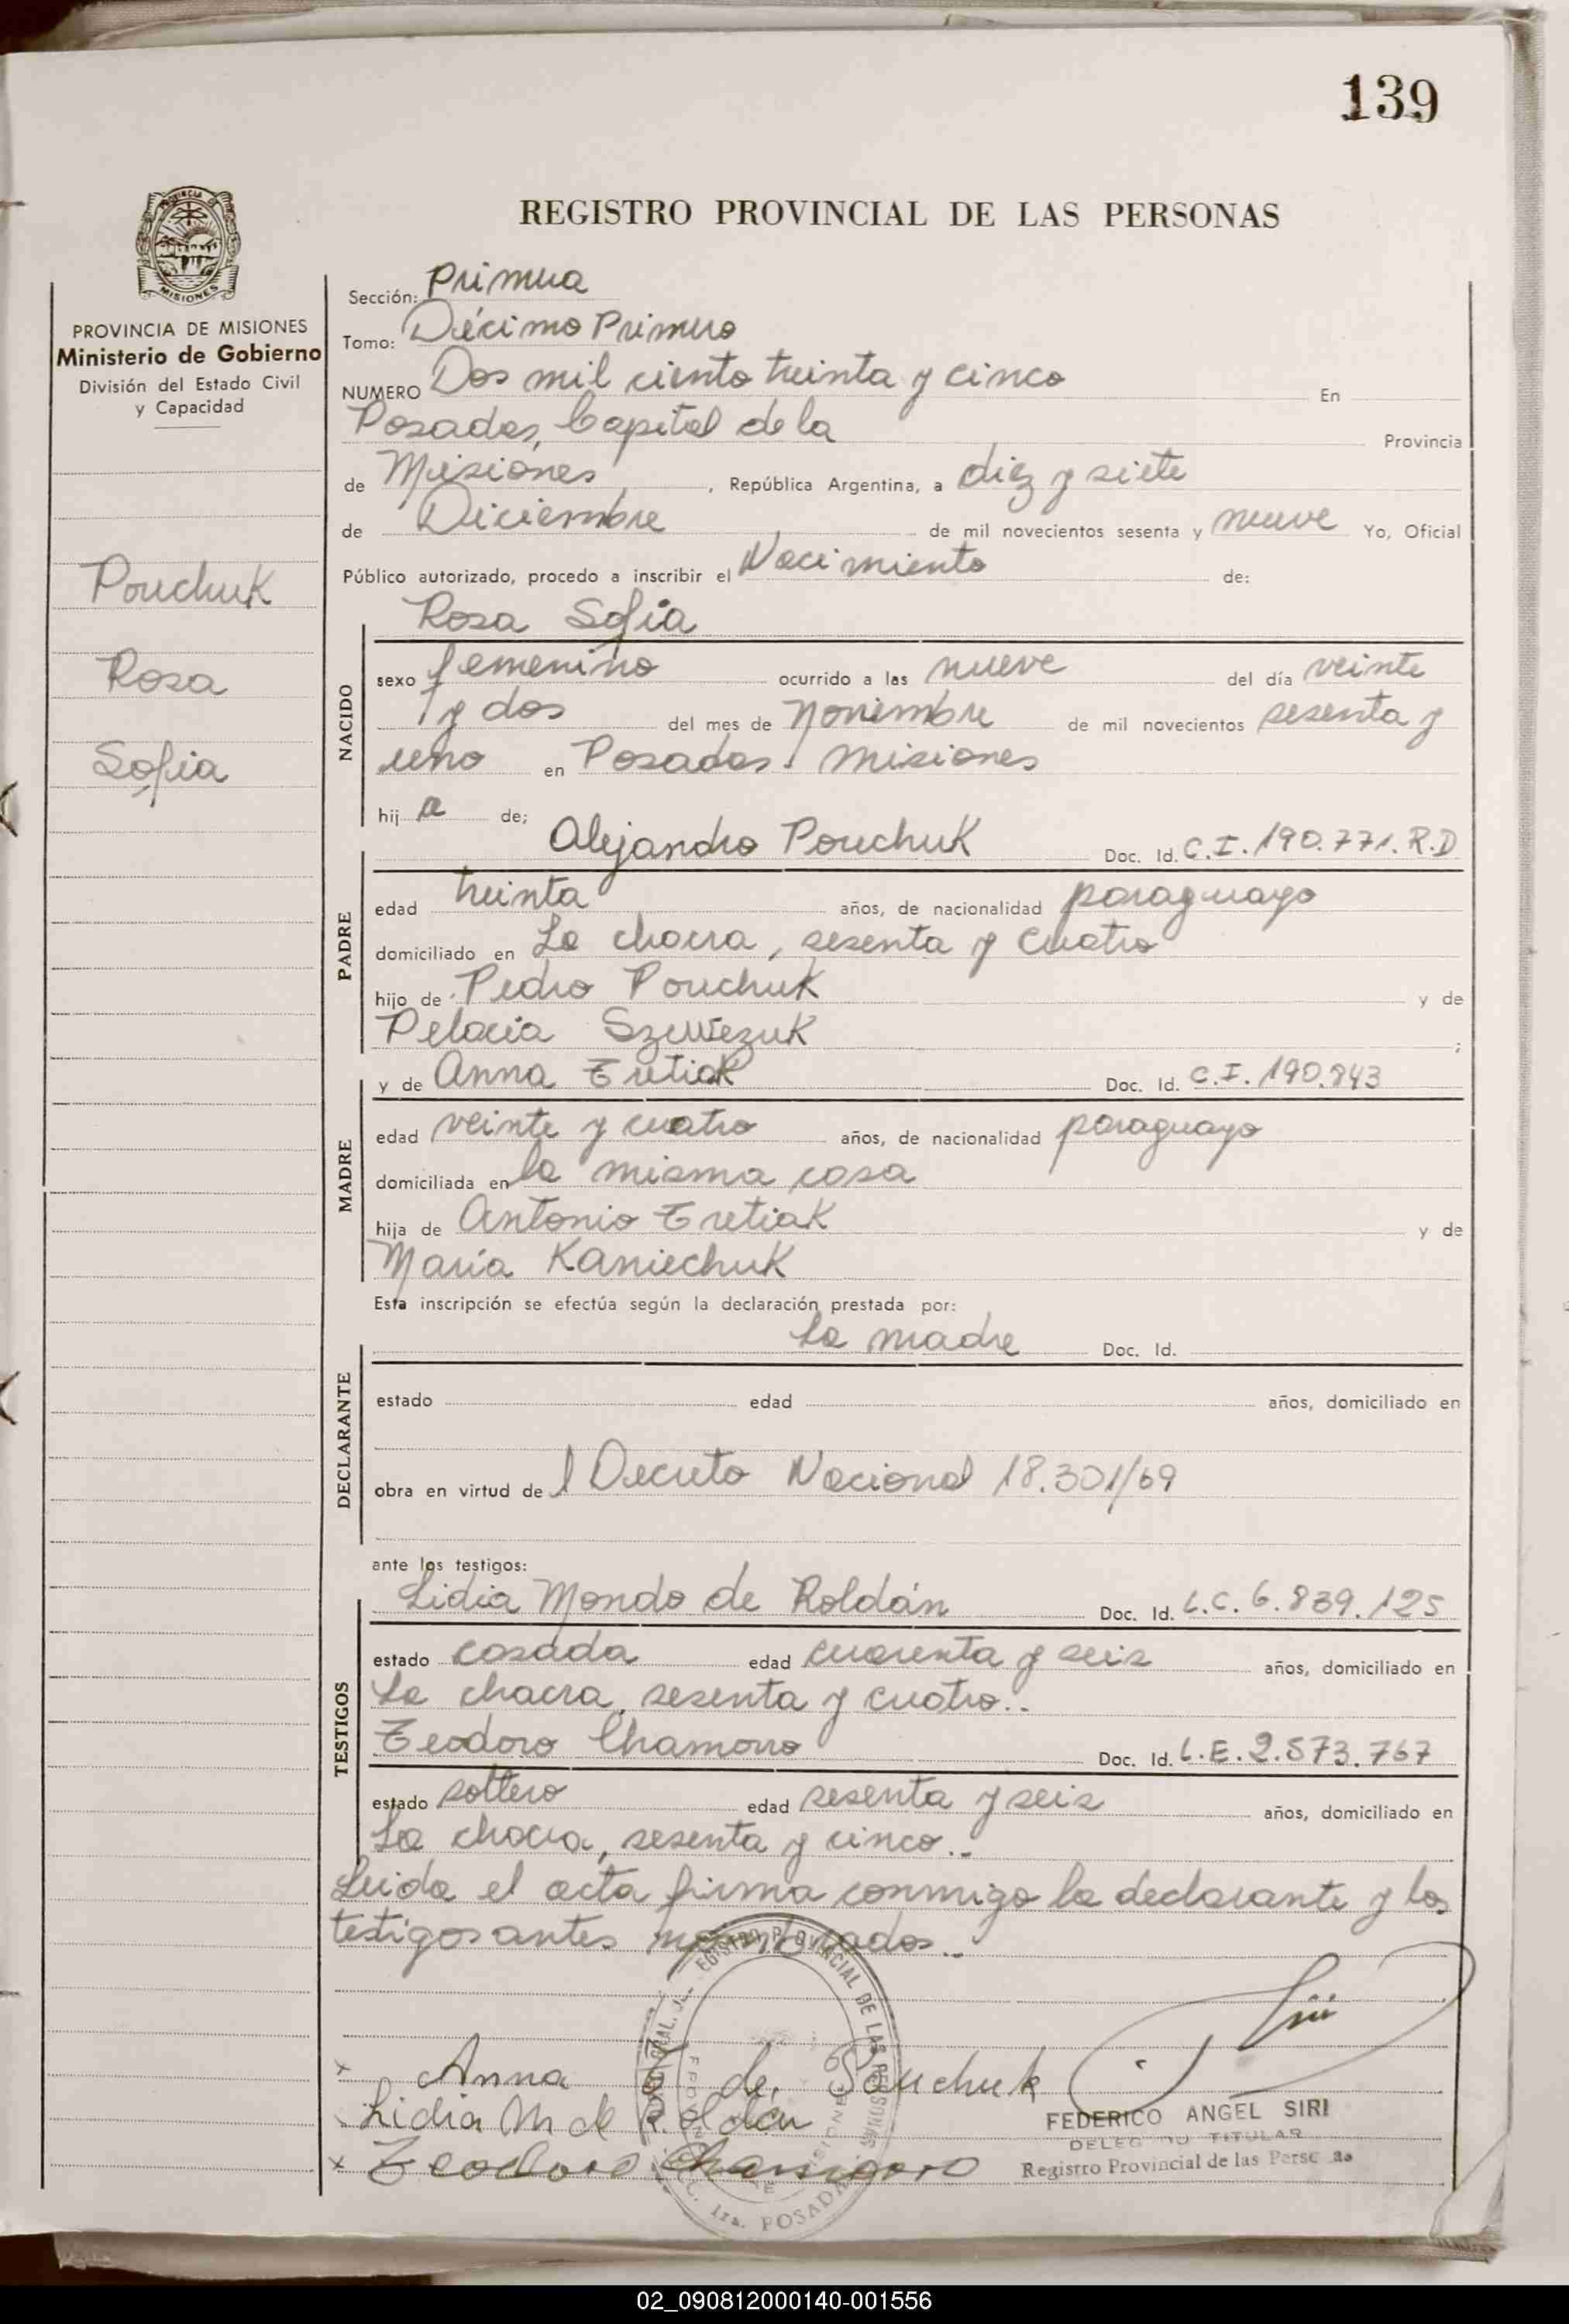 139
REGISTRO PROVINCIAL DE LAS PERSONAS
PROVINCIA DE MISIONES
Ministerio de Gobierno
División del Estado Civil
y Capacidad
Pouchuk
Rosa
Sofia
Sección: Primera
Tomo: Décimo Primero
NUMERO Dos mil ciento treinta y cinco En
Posadas, Capital de la Provincia
de Misiones, República Argentina, a diez y siete
de Diciembre de mil novecientos sesenta y nueve Yo, Oficial
Público autorizado, procedo a inscribir el Nacimiento de:
Rosa Sofia
NACIDO
sexo femenino ocurrido a las nueve del día veinte
y dos del mes de noviembre de mil novecientos sesenta y
uno en Posadas. Misiones
hij a de;
Alejandro Pouchuk Doc. Id. C.I. 190.771. R.D
PADRE
edad treinta años, de nacionalidad paraguayo
domiciliado en La chacra, sesenta y cuatro
hijo de Pedro Pouchuk y de
Pelacia ;
y de Anna Tretiak Doc. Id. C.I. 190.843
MADRE
edad veinte y cuatro años, de nacionalidad paraguayo
domiciliada en la misma casa
hija de Antonio Tretiak y de
María Kaniechuk
Esta inscripción se efectúa según la declaración prestada por:
La madre Doc. Id.
DECLARANTE
estado edad años, domiciliado en
obra en virtud de l Decreto Nacional 18.301/69
ante los testigos:
Lidia Mondo de Roldán Doc. Id. L.C. 6.839.125
TESTIGOS
estado casada edad cuarenta y seis años, domiciliado en
La chacra, sesenta y cuatro..
Teodoro Chamorro Doc. Id. L.E. 2.573.767
estado soltero edad sesenta y seis años, domiciliado en
La chacra, sesenta y cinco..
Leida el acta firma conmigo la declarante y los
testigos antes nombrados..
Anna de Pouchuk
Lidia M de Roldán
Teodoro Chamorro
FEDERICO ANGEL SIRI
TITULAR
Registro Provincial de las
02_090812000140-001556